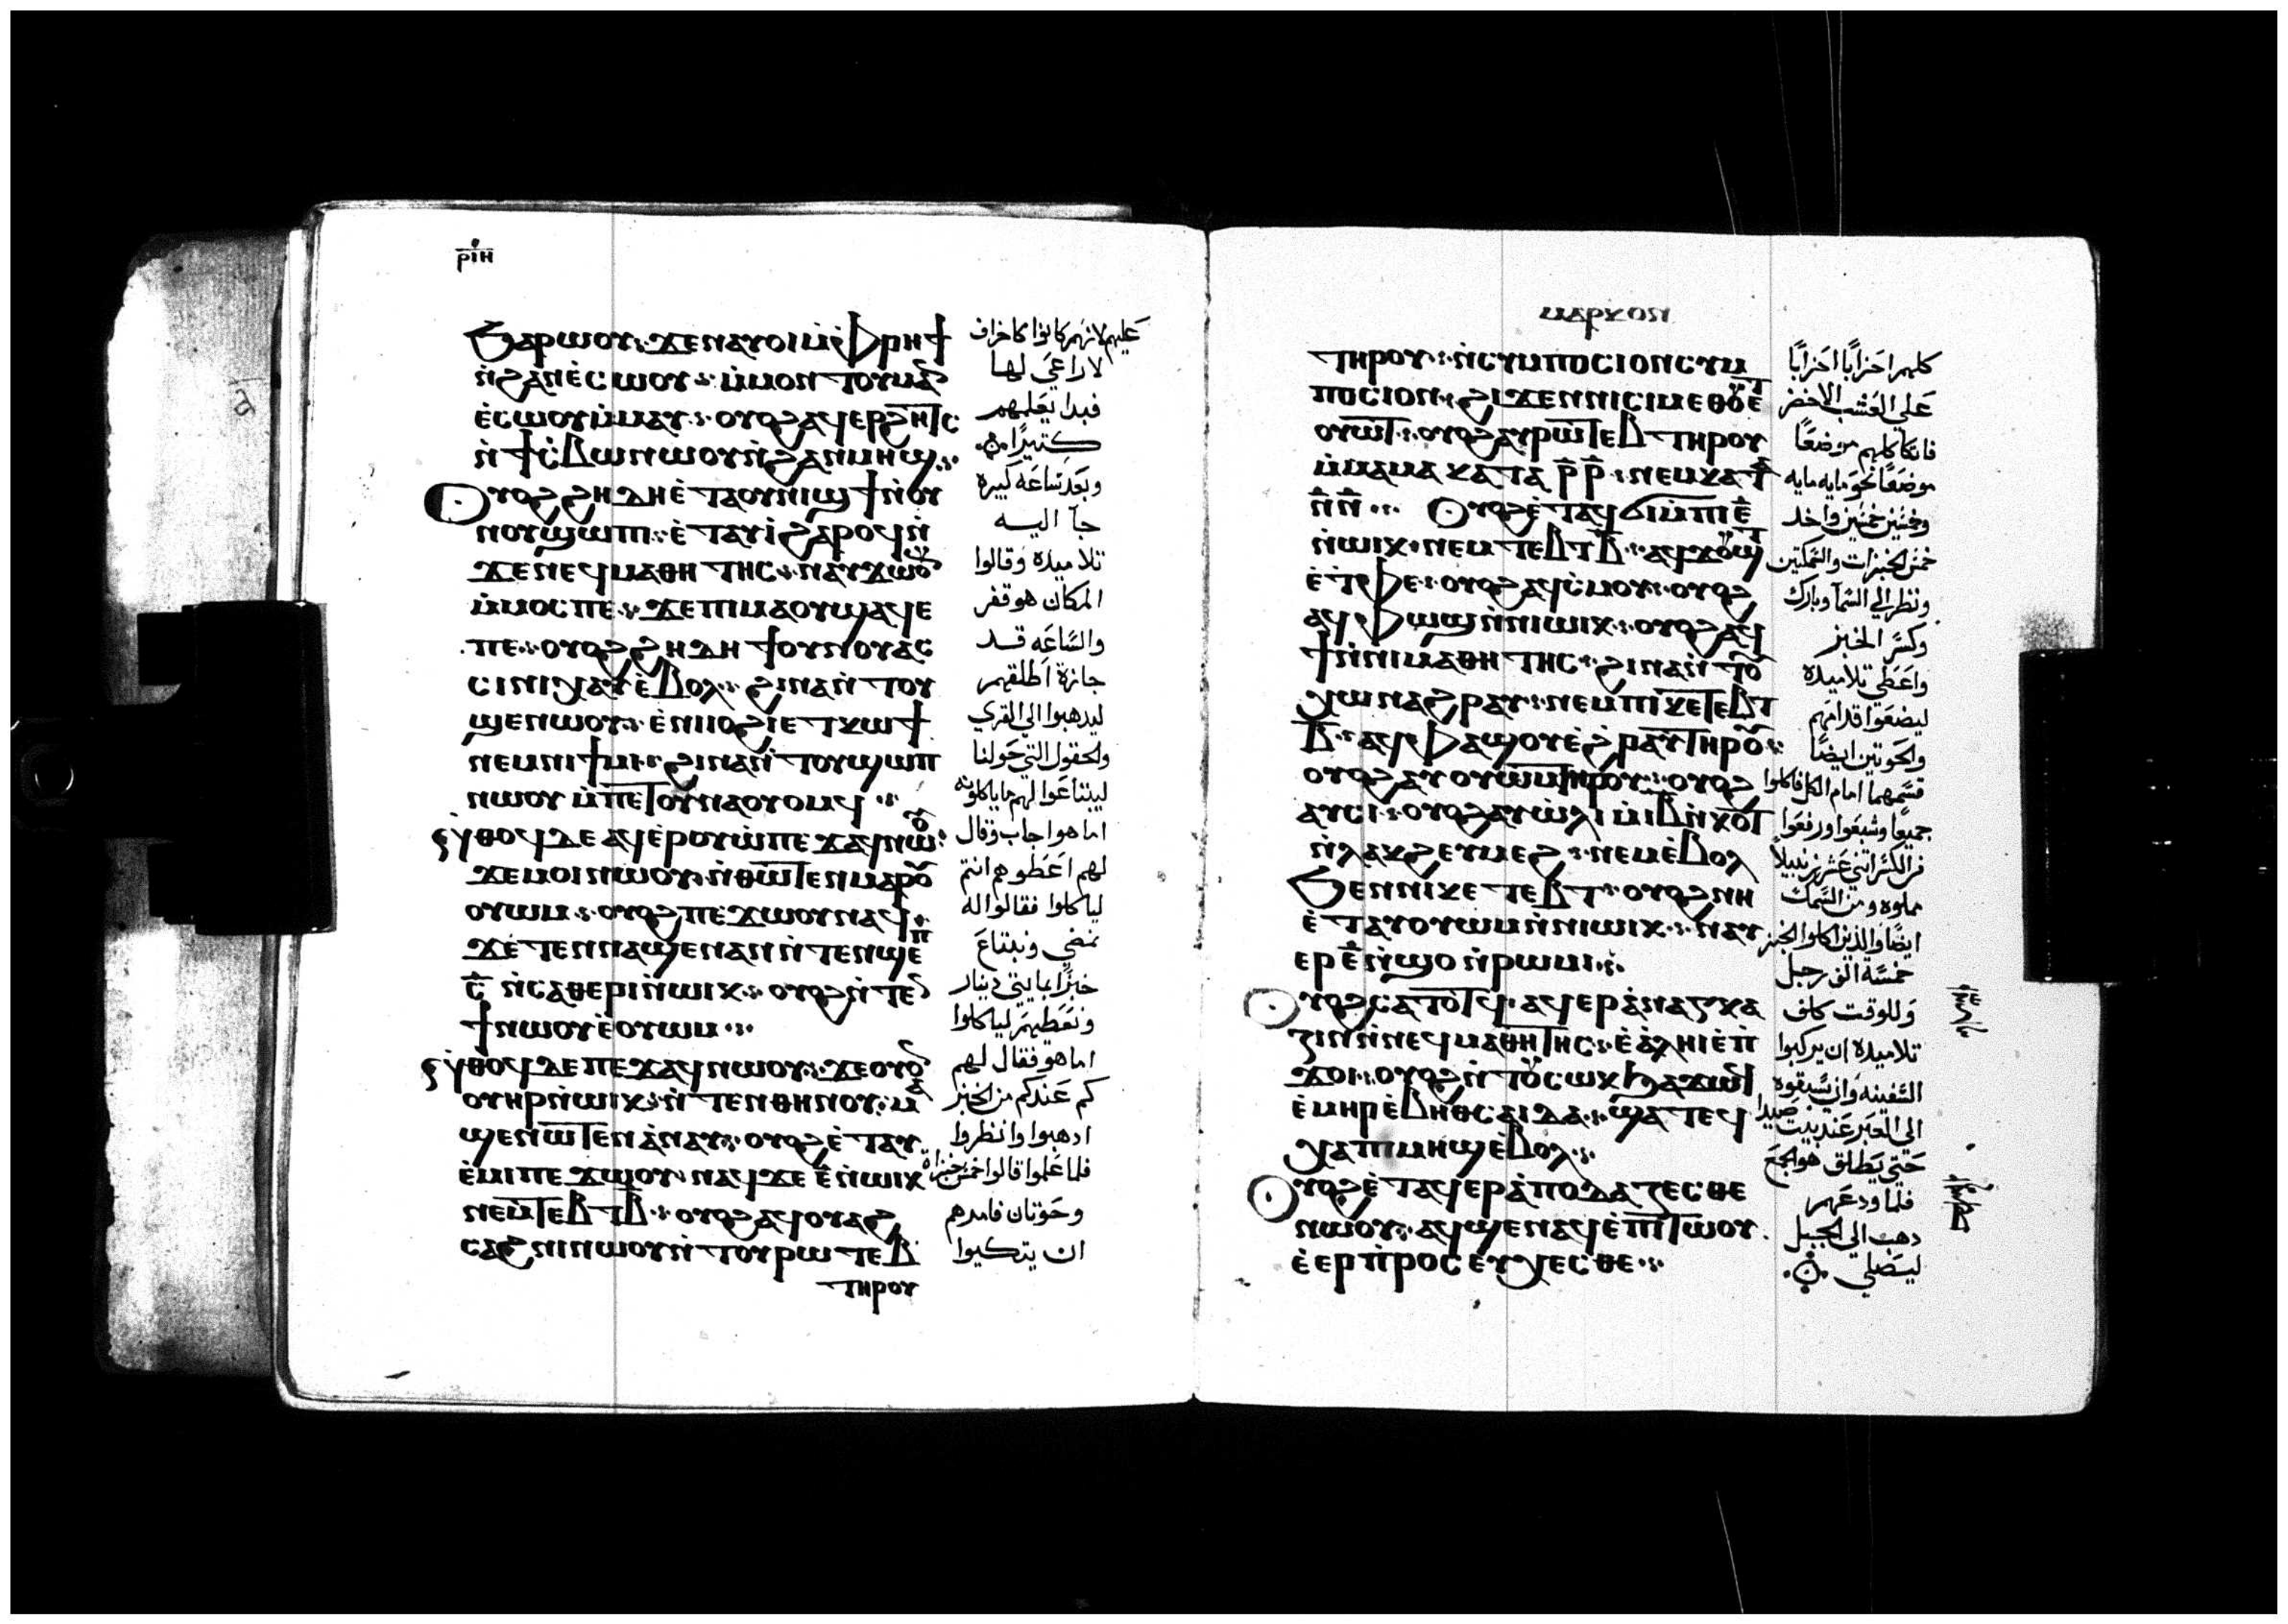 ⲣⲓⲏ
ϧⲁⲣⲱⲟⲩ ϫⲉ ⲛⲁⲩⲟⲓ ⲙ̀ⲫⲣⲏϯ
ⲛ̀ϩⲁⲛⲉ̀ⲥⲱⲟⲩ ⲙ̀ⲙⲟⲛ ⲧⲟⲩⲙⲁⲛ
ⲉ̀ⲥⲱⲟⲩ ⲙ̀ⲙⲁⲩ ⲟⲩⲟϩ ⲁϥⲉⲣϩⲏⲧⲥ
ⲛ̀ϯⲥ̀ⲃⲱ ⲛⲱⲟⲩ ⲛ̀ϩⲁⲛⲙⲏϣ
ⲟⲩⲟϩ ϩⲏⲇⲏ ⲉ̀ⲧⲁⲟⲩⲛⲓϣϯ ⲛ̀ⲟⲩ
ⲛⲟⲩ ϣⲱⲡⲓ ⲉ̀ⲧⲁⲩⲓ̀ ϩⲁⲣⲟϥ ⲛ̀
ϫⲉ ⲛⲉϥⲙⲁⲑⲏⲧⲏⲥ ⲛⲁⲩϫⲱⲟⲩ
ⲙ̀ⲙⲟⲥ ⲡⲉ ϫⲉ ⲡⲓⲙⲁ ⲟⲩϣⲁϥⲉ
ⲡⲉ ⲟⲩⲟϩ ϩⲏⲇⲏ ϯⲟⲩⲛⲟⲩ ⲁⲥ
ⲥⲓⲛⲓ ⲭⲁⲩ ⲉ̀ⲃⲟⲗ ϩⲓⲛⲁ ⲛ̀ⲧⲟⲩ
ϣⲉⲛⲱⲟⲩ ⲉ̀ⲛⲓⲟϩⲓ ⲉⲧⲕⲱϯ
ⲛⲉⲙ ⲛⲓϯⲙⲓ ϩⲓⲛⲁ ⲛ̀ⲧⲟⲩϣⲱⲡ
ⲛⲱⲟⲩ ⲙ̀ⲡⲉⲧⲟⲩⲛⲁⲟⲩⲟⲙϥ
ⲛ̀ⲑⲟϥ ⲇⲉ ⲁϥⲉ̀ⲣⲟⲩⲱ̀ ⲡⲉϫⲁϥ ⲛⲱⲟⲩ
ϫⲉ ⲙⲟⲓ ⲛⲱⲟⲩ ⲛ̀ⲑⲱⲧⲉⲛ ⲙⲁⲣⲟⲩ
ⲟⲩⲱⲙ ⲟⲩⲟϩ ⲡⲉϫⲱⲟⲩ ⲛⲁϥ
ϫⲉ ⲧⲉⲛⲛⲁϣⲉⲛⲁⲛ ⲛ̀ⲧⲉⲛϣⲉⲡ
ⲥ̄ ⲛ̀ⲥⲁⲑⲉⲣⲓ ⲛ̀ⲱⲓⲕ ⲟⲩⲟϩ ⲛ̀ⲧⲉⲛ
ϯ ⲛⲱⲟⲩ ⲉ̀ⲟⲩⲱⲙ
ⲛ̀ⲑⲟϥ ⲇⲉ ⲡⲉϫⲁϥ ⲛⲱⲟⲩ ϫⲉ ⲟⲩⲟⲛ
ⲟⲩⲏⲣ ⲛ̀ⲱⲓⲕ ⲛ̀ⲧⲉⲛⲑⲏⲛⲟⲩ ⲙⲁ
ϣⲉⲛⲱⲧⲉⲛ ⲁ̀ⲛⲁⲩ ⲟⲩⲟϩ ⲉ̀ⲧⲁⲩ
ⲉ̀ⲙⲓ ⲡⲉϫⲱⲟⲩ ⲛⲁϥ ϫⲉ ⲉ̄ ⲛ̀ⲱⲓⲕ
ⲛⲉⲙ ⲧⲉⲃⲧ ⲃ̄ ⲟⲩⲟϩ ⲁϥⲟⲩⲁϩ
ⲥⲁϩⲛⲓ ⲛⲱⲟⲩ ⲛ̀ⲧⲟⲩⲣⲱⲧⲉⲃ
ⲧⲏⲣⲟⲩ
عليهم لانهم كانوا كاخراف
لا راعي لها
فبدا يعلمهم
كتيرًا
وبعد ساعه كبيره
جآ اليه
تلاميده وقالوا
المكان هو قفر
والساعه قد
جازة اطلقهم
ليدهبوا الي القري
والحقول التي حولنا
ليبتاعوا لهم ما ياكلونه
اما هو اجاب وقال
لهم اعطوهم انتم
لياكلوا فقالوا له
نمضي ونبتاع
خبزًا بمايتي دينار
ونعطيهم لياكلوا
اما هو فقال لهم
كم عندكم من الخبز
ادهبوا وانظروا
فلما علموا قالوا خمس خبزاة
وحوتان فامرهم
ان يتكيوا
ⲙⲁⲣⲕⲟⲛ
ⲧⲏⲣⲟⲩ ⲛ̀ⲥⲩⲙⲡⲟⲥⲓⲟⲛ ⲥⲩⲙ
ⲡⲟⲥⲓⲟⲛ ϩⲓϫⲉⲛ ⲛⲓⲥⲓⲙ ⲉⲑⲟⲩⲉⲧ
ⲟⲩⲱⲧ ⲟⲩⲟϩ ⲁⲩⲣⲱⲧⲉⲃ ⲧⲏⲣⲟⲩ
ⲙ̀ⲙⲁ ⲙⲁ ⲕⲁⲧⲁ ⲣ̄ⲣ̄ ⲛⲉⲙ ⲕⲁⲧⲁ
ⲛ̄ⲛ̄ ⲟⲩⲟϩ ⲉ̀ⲧⲁϥϭⲓ ⲙ̀ⲡⲓⲉ̄
ⲛ̀ⲱⲓⲕ ⲛⲉⲙ ⲧⲉⲃⲧ ⲃ̄ ⲁϥϫⲟⲩϣⲧ
ⲉ̀ⲧⲫⲉ ⲟⲩⲟϩ ⲁϥⲥ̀ⲙⲟⲩ ⲟⲩⲟϩ
ⲁϥⲫⲱϣ ⲛ̀ⲛⲓⲱⲓⲕ ⲟⲩⲟϩ ⲁϥ
ϯ ⲛ̀ⲛⲓⲙⲁⲑⲏⲧⲏⲥ ϩⲓⲛⲁ ⲛ̀ⲧⲟⲩ
ⲭⲱ ⲛⲁϩⲣⲁⲩ ⲛⲉⲙ ⲡⲓⲕⲉⲧⲉⲃⲧ
ⲃ̄ ⲁϥⲫⲁϣⲟⲩ ⲉ̀ϩⲣⲁⲩ ⲧⲏⲣⲟⲩ
ⲟⲩⲟϩ ⲁⲩⲟⲩⲱⲙ ⲧⲏⲣⲟⲩ ⲟⲩⲟϩ
ⲁⲩⲥⲓ ⲟⲩⲟϩ ⲁⲩⲱ̀ⲗⲓ ⲙ̀ⲓ̄ⲃ̄ ⲛ̀ⲕⲟⲧ
ⲛ̀ⲗⲁⲕϩ ⲉⲩⲙⲉϩ ⲛⲉⲙ ⲉ̀ⲃⲟⲗ
ϧⲉⲛ ⲛⲓⲕⲉⲧⲉⲃⲧ ⲟⲩⲟϩ ⲛⲏ
ⲉ̀ⲧⲁⲩⲟⲩⲱⲙ ⲛ̀ⲛⲓⲱⲓⲕ ⲛⲁⲩ
ⲉⲣ ⲉ̄ ⲛ̀ϣⲟ ⲛ̀ⲣⲱⲙⲓ
ⲟⲩⲟϩ ⲥⲁⲧⲟⲧϥ ⲁϥⲉⲣⲁ̀ⲛⲁⲅⲕⲁ
ⲍⲓⲛ ⲛ̀ⲛⲉϥⲙⲁⲑⲏⲧⲏⲥ ⲉ̀ⲁ̀ⲗⲏⲓ ⲉ̀ⲡ
ϫⲟⲓ ⲟⲩⲟϩ ⲛ̀ⲧⲟⲩⲥⲱⲕ ϧⲁϫⲱϥ
ⲉ̀ⲙⲏⲣ ⲉ̀ⲃⲏⲑⲥⲁⲓⲇⲁ ϣⲁⲧⲉϥ
ⲭⲁ ⲡⲓⲙⲏϣ ⲉ̀ⲃⲟⲗ
ⲟⲩⲟϩ ⲉ̀ⲧⲁϥⲉⲣⲁ̀ⲡⲟⲇⲁⲍⲉⲥⲑⲉ
ⲛⲱⲟⲩ ⲁϥϣⲉⲛⲁϥ ⲉ̀ⲡⲓⲧⲱⲟⲩ
ⲉ̀ⲉⲣⲡ̀ⲣⲟⲥⲉⲩⲭⲉⲥⲑⲉ
كلهم احزابًا احزابًا
علي العشب الاخضر
فاتكا كلهم موضعًا
موضعًا نحو مايه مايه
وخمسين خمسين واخد
خمس الخبزات والسمكتين
ونظر الي السمآ وبارك
وكسر الخبز
واعطي تلاميده
ليضعوا قدامهم
والحوتين ايضًا
قسمهما امام الكل فاكلوا
جميعًا وشبعوا ورفعوا
من الكسر اتني عشر زنبيلًا
مملوه ومن السمك
ايضًا والذين اكلوا الخبز
خمسة الف رجل
وللوقت كلف
تلاميده ان يركبوا
السفينه وان يسبقوه
الي العبر عند بيت صيدا
حتي يطلق هو الجمع
فلما ودعهم
دهب الي الجبل
ليصلي